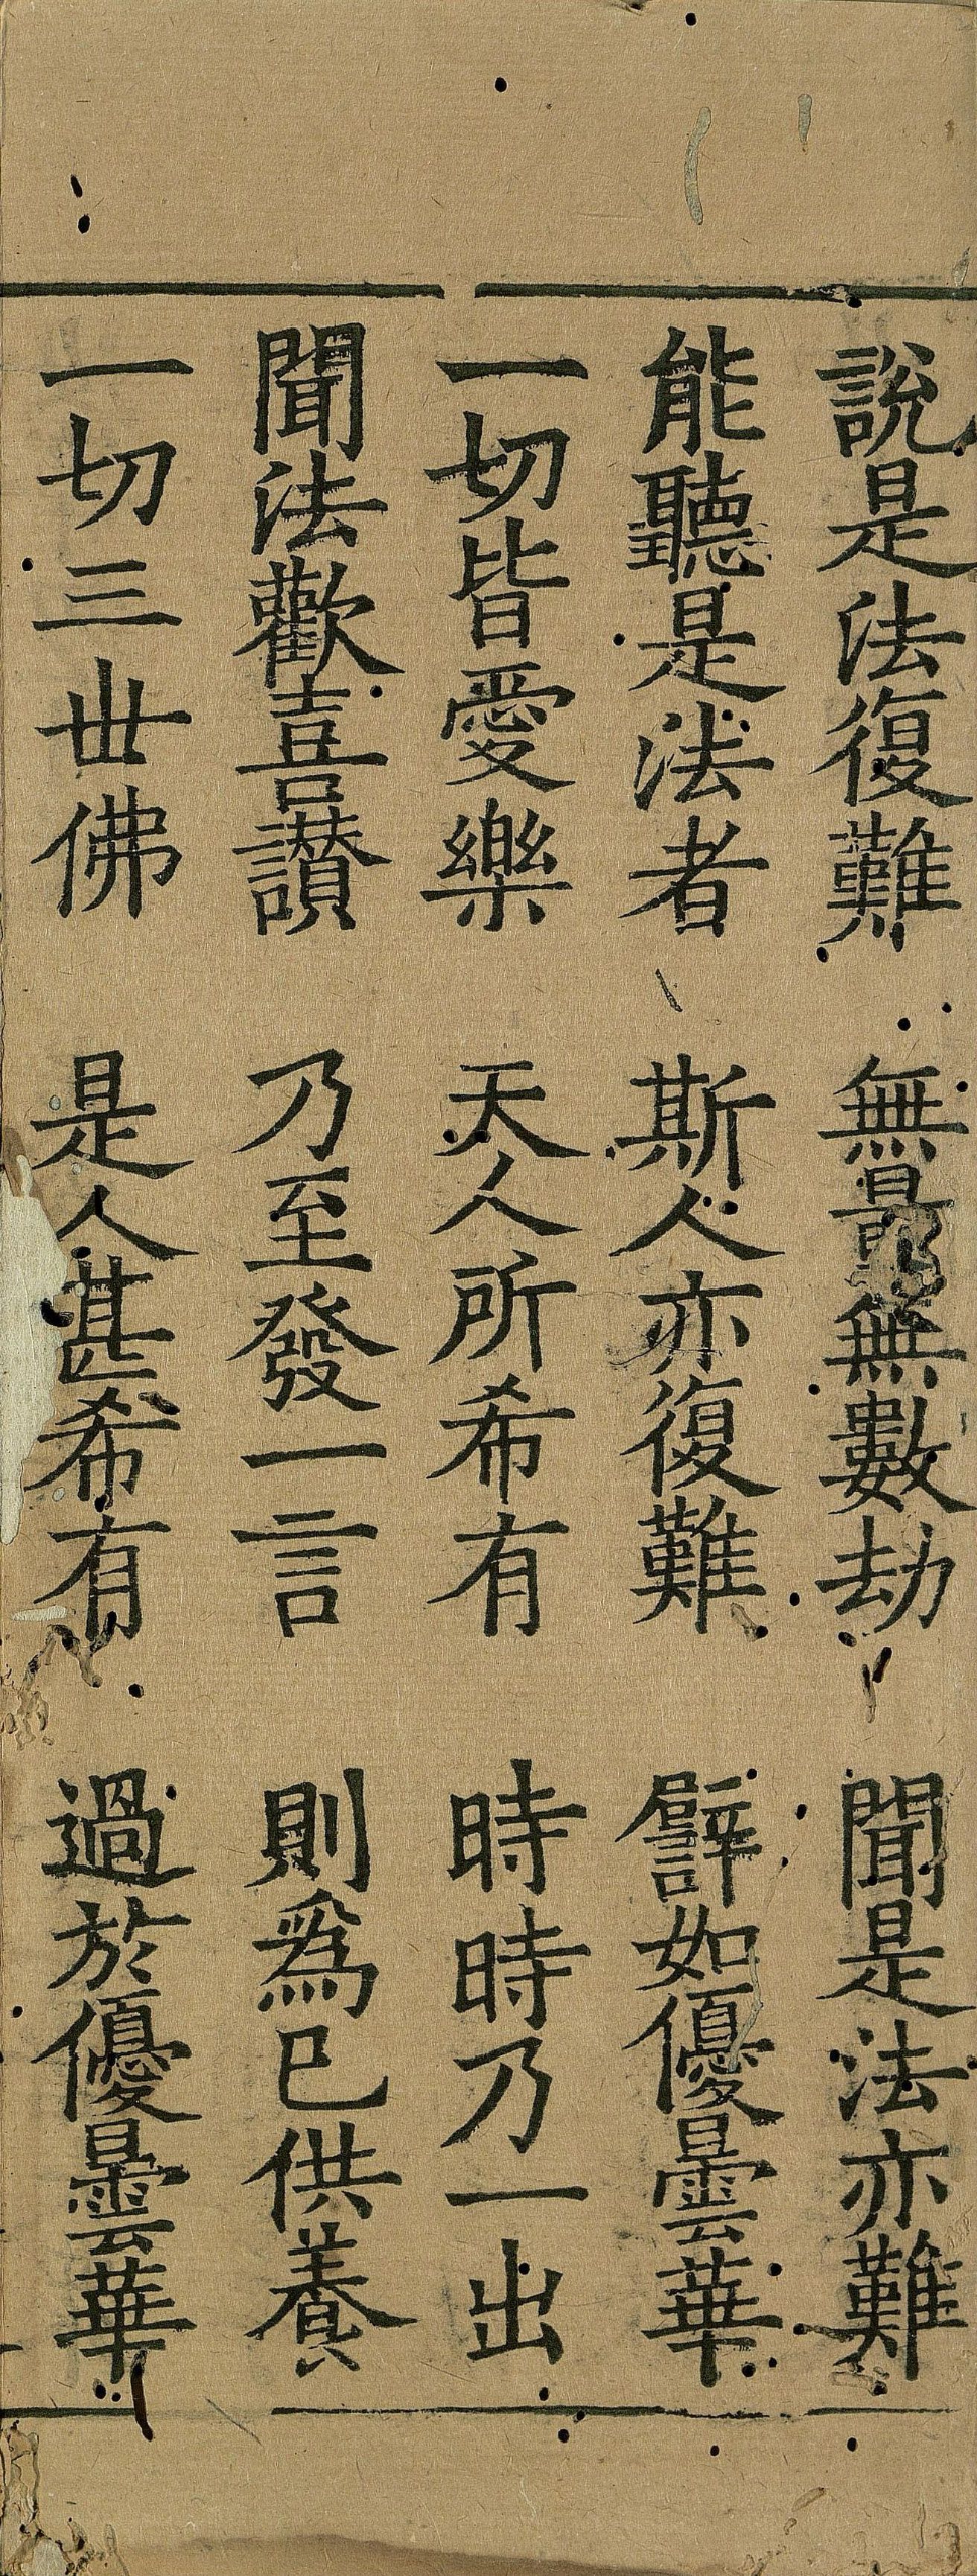 說是法復難　無量無數劫　聞是法亦難
能聽是法者　斯人亦復難　譬如優曇華
一切皆愛樂　天人所希有　時時乃一出
聞法歡喜讃　乃至發一言　則爲已供養
一切三丗佛　是人甚希有　過於優曇華